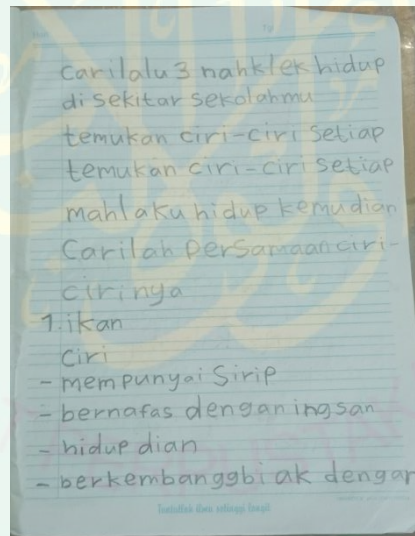 carilalu 3 nahklek hidup
disekitar sekolahmu
temukan ciri-ciri setiap
temukan ciri-ciri setiap
mahlaku hidup kemudian
Carilah persamaan ciri-
cirinya
1. ikan
Ciri
- mempunyai Sirip
- bernafas dengan ingsan
- hidup dian
- berkembanggbi ak dengar
Tuntutlah ilmu setinggi langit